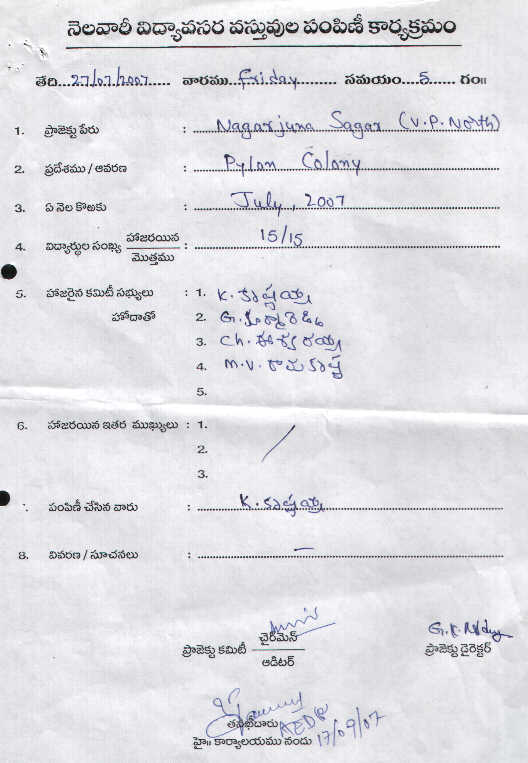 నెలవారీ విద్యావసర వస్తువుల పంపిణీ కార్యక్రమం
తేది....27/07/2007...... వారము...Friday.......... సమయం....5..... గం॥
1. ప్రాజెక్టు పేరు : Nagarjuna Sagar (V.P. North)
2. ప్రదేశము / ఆవరణ : Pylon Colony
3. ఏ నెల కొఱకు : July, 2007
4. విద్యార్థుల సంఖ్య హాజరయిన / మొత్తము : 15/15
5. హాజరైన కమిటీ సభ్యులు : 1. K. కృష్ణయ్య
హోదాతో 2. G.
3. Ch. ఈశ్వరయ్య
4. M.V. రామకృష్ణ
5.
6. హాజరయిన ఇతర ముఖ్యులు : 1.
2.
3.
. పంపిణీ చేసిన వారు : K. కృష్ణయ్య
8. వివరణ / సూచనలు : —
ప్రాజెక్టు కమిటీ చైర్‌మెన్ / ఆడిటర్
G.K. Reddy
ప్రాజెక్టు డైరెక్టర్
తనిఖీదారు AEDP
హై॥ కార్యాలయము నందు 17/09/07